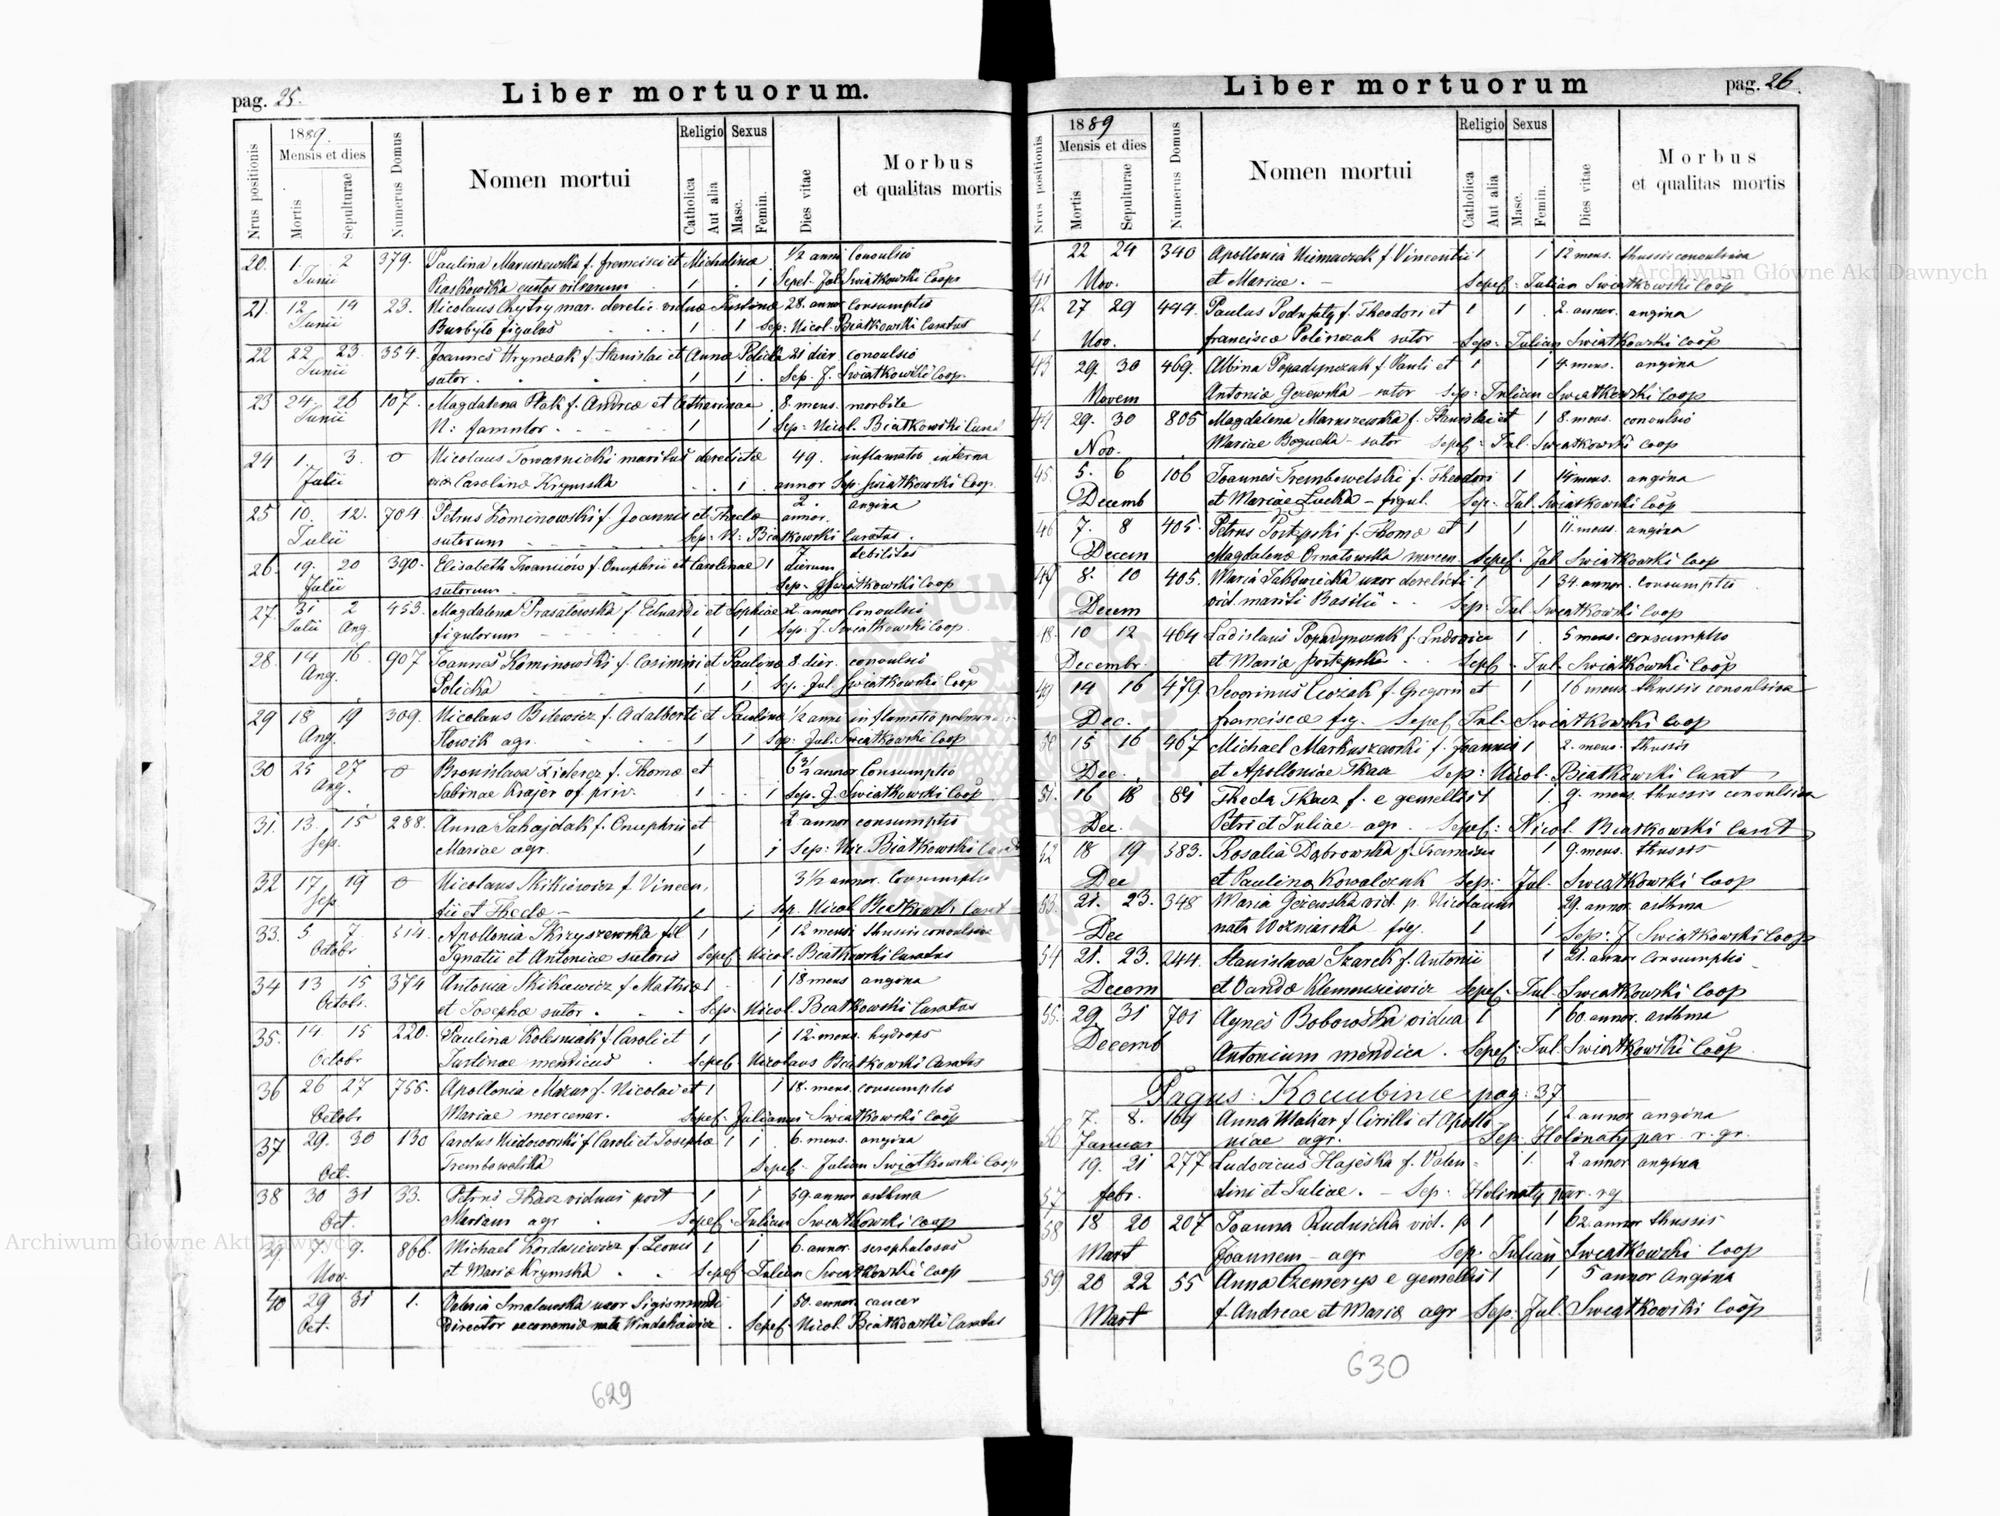 pag. 25.
Liber mortuorum.
Nrus positionis
1889.
Mensis et dies
Mortis
Sepulturae
Numerus Domus
Nomen mortui
Religio
Catholica
Aut alia
Sexus
Masc.
Femin.
Dies vitae
Morbus
et qualitas mortis
20. 1. 2 379. Paulina Maruszewska f. francisci et Michalina ½ anni Convulsio
Junii Piaskowska custos silvarum 1 1 Sepel. Jul Swiatkowski Coop
21. 12 14 23. Nicolaus Chytry mar. derelic. viduæ Justinæ 28. annor Consumptio
Junii Burbyło figulus 1 1 Sep: Nicol. Białkowski Curatus
22 22 23. 354. Joannes Hrynczak f. Stanislai et Annæ Policka 21 dier. convulsio
Junii sutor. 1 1 Sep. J. Swiatkowski Coop.
23 24. 26 107. Magdalena Ptak f. Andreæ et Catharinae 8. mens. morbile
Junii N: famulor 1 1 Sep: Nicol. Białkowski
24 1. 3. 0 Nicolaus Towarnicki maritus derelictæ 49. inflamatio interna
Julii Carolinæ Krymska 1 annor Sep. Swiatkowski Coop.
25 10. 12. 704 Petrus Kominowski f. Joannis et Theclæ 2. annor. angina
Julii sutorum Sep: N: Białkowski Curatus.
26. 19. 20 390. Elisabeth Iwanciów f. Onuphrii et Carolinae 1 7 dierum debilitas
Julii sutorum Sep. J Swiatkowski Coop
27. 31 2 453. Magdalena Prasałowska f. Eduardi et Sophiæ 2 annor Convulsio
Julii Aug. figulorum 1 1 Sep. J. Swiatkowski Coop.
28. 14 16. 907 Joannes Kominowski f. Casimiri et Paulinæ 8. dier. convulsio
Aug. Policka 1 1 Sep. Jul. Swiatkowski Coop
29 18 19 309. Nicolaus Bilewicz f. Adalberti et Paulinæ ½ anni inflamatio pulmon
Aug. Słowik agr. 1 1 Sep: Jul. Swiatkowski Coop
30 25 27 0 Bronislava Fiderer f. Thomæ et 6½ annor Consumptio
Aug. Sabinae Krajer of. priv. 1 1 Sep. J. Swiatkowski Coop
31. 13. 15 288. Anna Sahajdak f. Onuphrii et 2 annor consumptio
Sep. Mariae agr. 1 1 Sep: Nic. Białkowski
32 17. 19 0 Nicolaus Skikiewicz f. Vincen, 3½ annor. Consumptio
Sep tii et Theclæ 1 1 Sep. Nicol. Białkowski Curat
33. 5 7. 514. Apollonia Skrzyszewska fil 1 1 12 mens. thussis convulsiva
Octobr Ignatii et Antoniæ sutoris Sepel. Nicol. Białkowski Curatus
34 13 15 374 Antonia Skikiewicz f Mathiæ 1 1 18 mens angina
Octobr. et Josephæ sutor. Sep: Nicol. Białkowski Curatus
35. 14 15 220. Paulina Kolesniak f. Caroli et 1 1 12. mens. hydrops
Octobr Justinae mendicus Sepel. Nicolaus Białkowski Curatus
36 26 27 755. Apollonia Mazur f. Nicolai et 1 1 18. mens. consumptio
Octobr Mariae mercenar. Sepel. Julianus Swiatkowski Coop
37 29. 30 130 Carolus Niedzwoski f Caroli et Josephæ 1 1 6. mens. angina
Oct. Trembowelska Sepel. Julian Swiatkowski Coop
38 30 31 33. Petrus Tkacz viduus post 1 1 59. annor asthma
Oct. Mariam agr Sepel. Julian Swiatkowski Coop
39. 7. 9. 866. Michael Kordasiewicz f. Leonis 1 1 6. annor scrophulosus
Nov. et Mariæ Krymska Sepel. Julian Swiatkowski Coop
40 29 31 1. Valeria Smalawska uxor Sigismundi 1 50. annor. cancer
Oct. Director oeconomiæ nata Windakiewicz Sepel. Nicol. Białkowski Curatus
629
Liber mortuorum
pag. 26.
Nrus positionis
1889
Mensis et dies
Mortis
Sepulturae
Numerus Domus
Nomen mortui
Religio
Catholica
Aut alia
Sexus
Masc.
Femin.
Dies vitae
Morbus
et qualitas mortis
22 24 340 Apollonia f Vincentii 1 1 12 mens. thussis convulsiva
41 Nov. et Mariae. Sepel. Julian Swiatkowski Coop
42 27 29 444. Paulus f. Theodori et 1 1 2. annor. angina
Nov. franciscæ sutor Sep. Julian Swiatkowski Coop
43 29. 30 469. Albina Popadynczuk f Pauli et 1 1 4. mens. angina
Novem Antoniæ Gezewska sutor Sep: Julian Swiatkowski Coop
44 29. 30 805 Magdalena Maruszewska f. Stanislai et 1 8. mens. convulsio
Nov. Mariae Bogucka - sutor Sepel. Jul. Swiatkowski Coop
45. 5. 6 106 Joannes Trembowelski f. Theodori 1 14 mens. angina
Decemb et Mariae Łucka - figul. Sep. Jul. Swiatkowski Coop
46 7. 8 405. Petrus Postępski f. Thomæ et 1 1 11. mens. angina
Decem Magdalenæ Ornatowska mercen Sepel. Jul Swiatkowski Coop
47 8. 10 405. Maria Jakowiecka uxor derelicti 1 1 34. annor. Consumptio
Decem vid. mariti Basilii Sep: Jul. Swiatkowski Coop
48. 10 12 464 Ladislaus Popadynczuk f. Ludovica 1 5 mens. consumptio
Decembr. et Mariæ Postępska Sepel. Jul. Swiatkowski Coop
49 14 16 479. Severinus Ciozak f. Gregorii et 1 16 mens. thussis convulsiva
Dec. franciscæ fig. Sepel. Jul. Swiatkowski Coop
50 15 16 467 Michael Markuszewski f. Joannis 1 2. mens. thussis
Dec. et Apolloniae Tkacz Sep: Nicol. Białkowski Curat
51. 16 18 84 Thecla Tkacz f. e gemellis 1 1. 9. mens. thussis convulsiva
Dec. Petri et Juliae agr. Sepel: Nicol. Białkowski Curat
52 18 19 383. Rosalia Dąbrowska f. Francisci 1 9. mens. thussis
Dec et Paulina Kowalczuk Sep: Jul. Swiatkowski Coop
53. 21. 23. 348 Maria Gezewska vid. p. Nicolaum 29. annor. asthma
Dec nata Wozniarska fig. 1 1 Sep: J Swiatkowski Coop
54 21. 23. 244. Stanislava Szarek f. Antonii 1 21. annor Consumptio
Decem et Vandæ Klemensiewicz Sepel: Jul. Swiatkowski Coop
55. 29 31 701 Agnes Bobowska vidua 1 1 60. annor. asthma
Decemb Antonium mendica. Sepel: Jul. Swiatkowski Coop
Pagus: Koлubince pag: 37
7. 8. 164 Anna Makar f Cirilli et Apollo 1 2 annor angina
56 Januar niae agr. Sep. Holinaty par. r. gr.
19. 21 277 Ludovicus Hajeska f. Valen- 1. 2 annor angina
57 febr. tini et Juliae. Sep: Holinaty par. rg
58 18 20 207 Joanna Rudnicka vid. p 1 1 62. annor thussis
Mart Joannem - agr Sep. Julian, Swiatkowski Coop
59 20 22 55 Anna Czemerys e gemellis 1 1 5 annor Angina
Mart f. Andreae et Mariæ agr Sep: Jul. Swiatkowski Coop
630
Nakładem drukarni Ludowej we Lwowie.
Archiwum Główne Akt Dawnych
Archiwum Główne Akt Dawnych